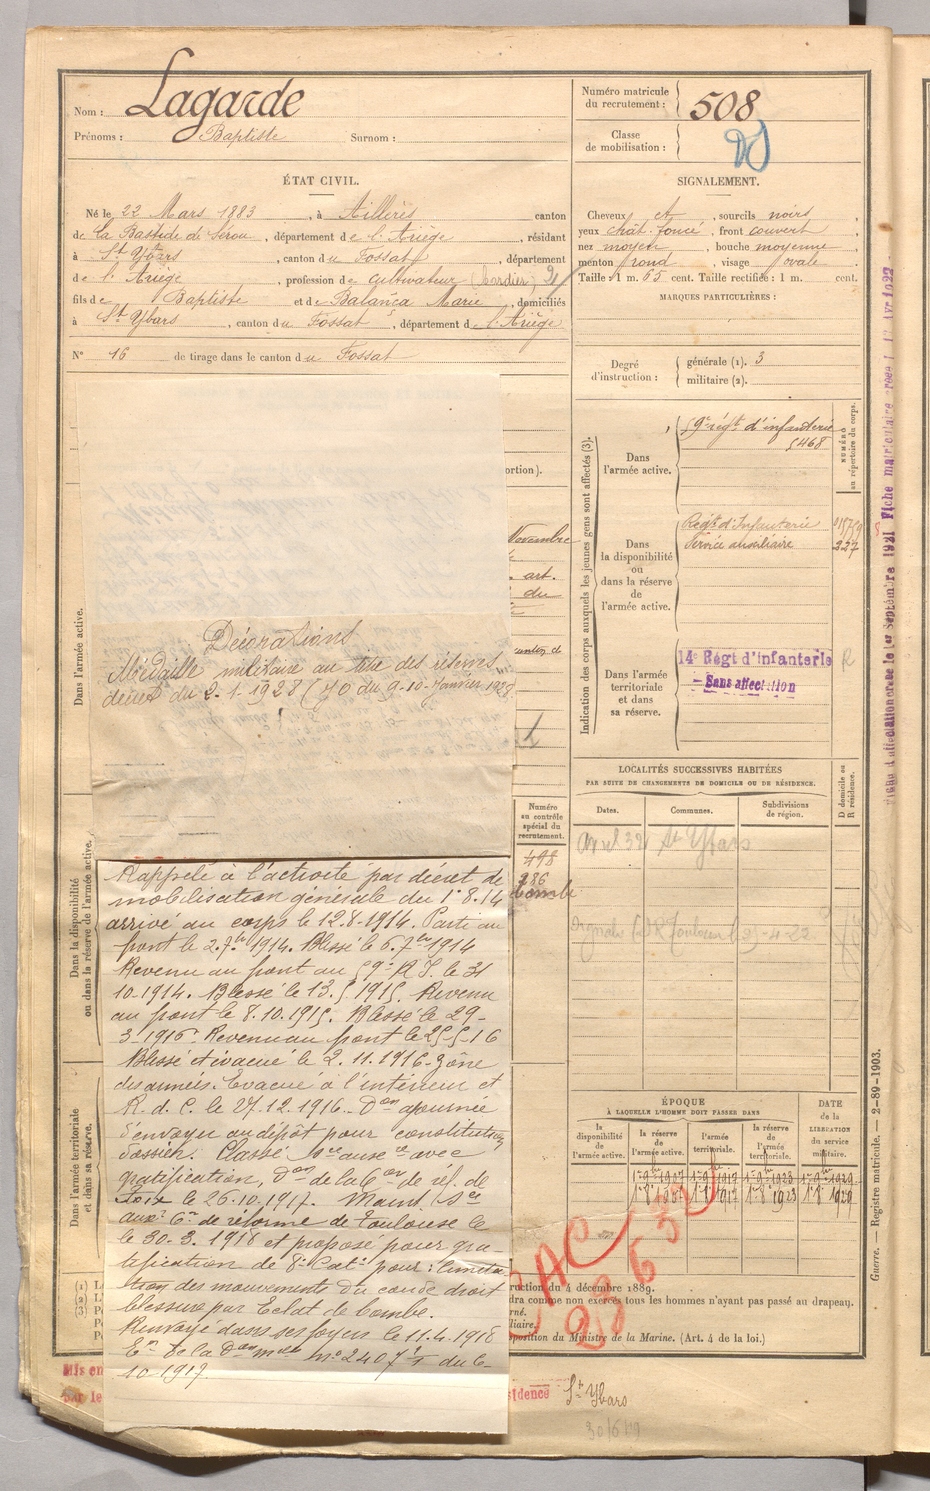 Nom : Lagarde
Prénoms : Baptiste Surnom :
Numéro matricule du recrutement : 508
Classe de mobilisation :
ÉTAT CIVIL.
Né le 22 Mars 1883, à Aillères canton
de La Bastide de Sérou, département de l'Ariège, résidant
à St Ybars, canton du Fossat, département
de l'Ariège, profession de cultivateur (bordier)
fils de Baptiste et de Balança Marie, domiciliés
à St Ybars, canton du Fossat, département de l'Ariège
N° 16 de tirage dans le canton du Fossat
SIGNALEMENT.
Cheveux et, sourcils noirs,
yeux chât. foncé, front couvert
nez moyen, bouche moyenne
menton rond, visage ovale.
Taille : 1 m. 65 cent. Taille rectifiée : 1 m. cent.
MARQUES PARTICULIÈRES :
Degré d'instruction : générale (1). 3
militaire (2).
Indication des corps auxquels les jeunes gens sont affectés (3).
NUMÉRO au répertoire du corps.
Dans l'armée active.
59e régt d'infanterie
5468
Dans la disponibilité ou dans la réserve de l'armée active.
Régt d'Infanterie
Service auxiliaire
227
Dans l'armée territoriale et dans sa réserve.
14e Régt d'infanterie
Sans affectation
ortion).
Novembre
art.
du
Dans l'armée active.
Décorations
Médaille militaire au titre des réserves
décret du 2.1.1928 (JO du 9-10 Janvier 1928)
LOCALITÉS SUCCESSIVES HABITÉES
PAR SUITE DE CHANGEMENTS DE DOMICILE OU DE RÉSIDENCE.
D domicile ou R résidence.
Dates. Communes. Subdivisions de région.
Avril 32 St Ybars
Numéro au contrôle spécial du recrutement.
498
286
bombe
Dans la disponibilité ou dans la réserve de l'armée active.
Rappelé à l'activité par décret de
mobilisation générale du 1er 8.14
arrivé au corps le 12.8.1914. Parti au
front le 2.7bre 1914. Blessé le 6.7bre 1914
Revenu au front au 59e R.I. le 31
10.1914. Blessé le 13.5.1915. Revenu
au front le 8.10.1915. Blessé le 29-
3.1916. Revenu au front le 25-5-16
Blessé et évacué le 2.11.1916. Zône
des armées. Evacué à l'intérieur et
R.d.C. le 27.12.1916. Don ajournée
d'envoyer au dépôt pour constitution
dossier. Classé Sce auxre avec
gratification, Don de la Con de réf. de
Foix le 26.10.1917. Maint. Sce
auxre Con de réforme de Toulouse le
le 30-3.1918 et proposé pour gra-
tification de 8e Catie pour : limita
tion des mouvements du coude droit
blessure par Eclat de bombe.
Renvoyé dans ses foyers le 11.4.1918
En de la Don mlle No 2407 du 6-
10 1917
Dans l'armée territoriale et dans sa réserve.
ÉPOQUE
À LAQUELLE L'HOMME DOIT PASSER DANS
DATE de la LIBÉRATION du service militaire.
la disponibilité de l'armée active.
la réserve de l'armée active.
l'armée territoriale.
la réserve de l'armée territoriale.
1er 9bre 1907 1er 9bre 1917 1er 9bre 1923 1er 9bre 1929
1er 8 1907 1er 8 1917 1er 8 1923 1er 8 1929
ruction du 4 décembre 1889.
dra comme non exercés tous les hommes n'ayant pas passé au drapeau.
rné.
iliaire.
position du Ministre de la Marine. (Art. 4 de la loi.)
(1)
(2)
(3)
Mis en
sidence St Ybars
30/6/19
Guerre. — Registre matricule. — 2-89-1903.